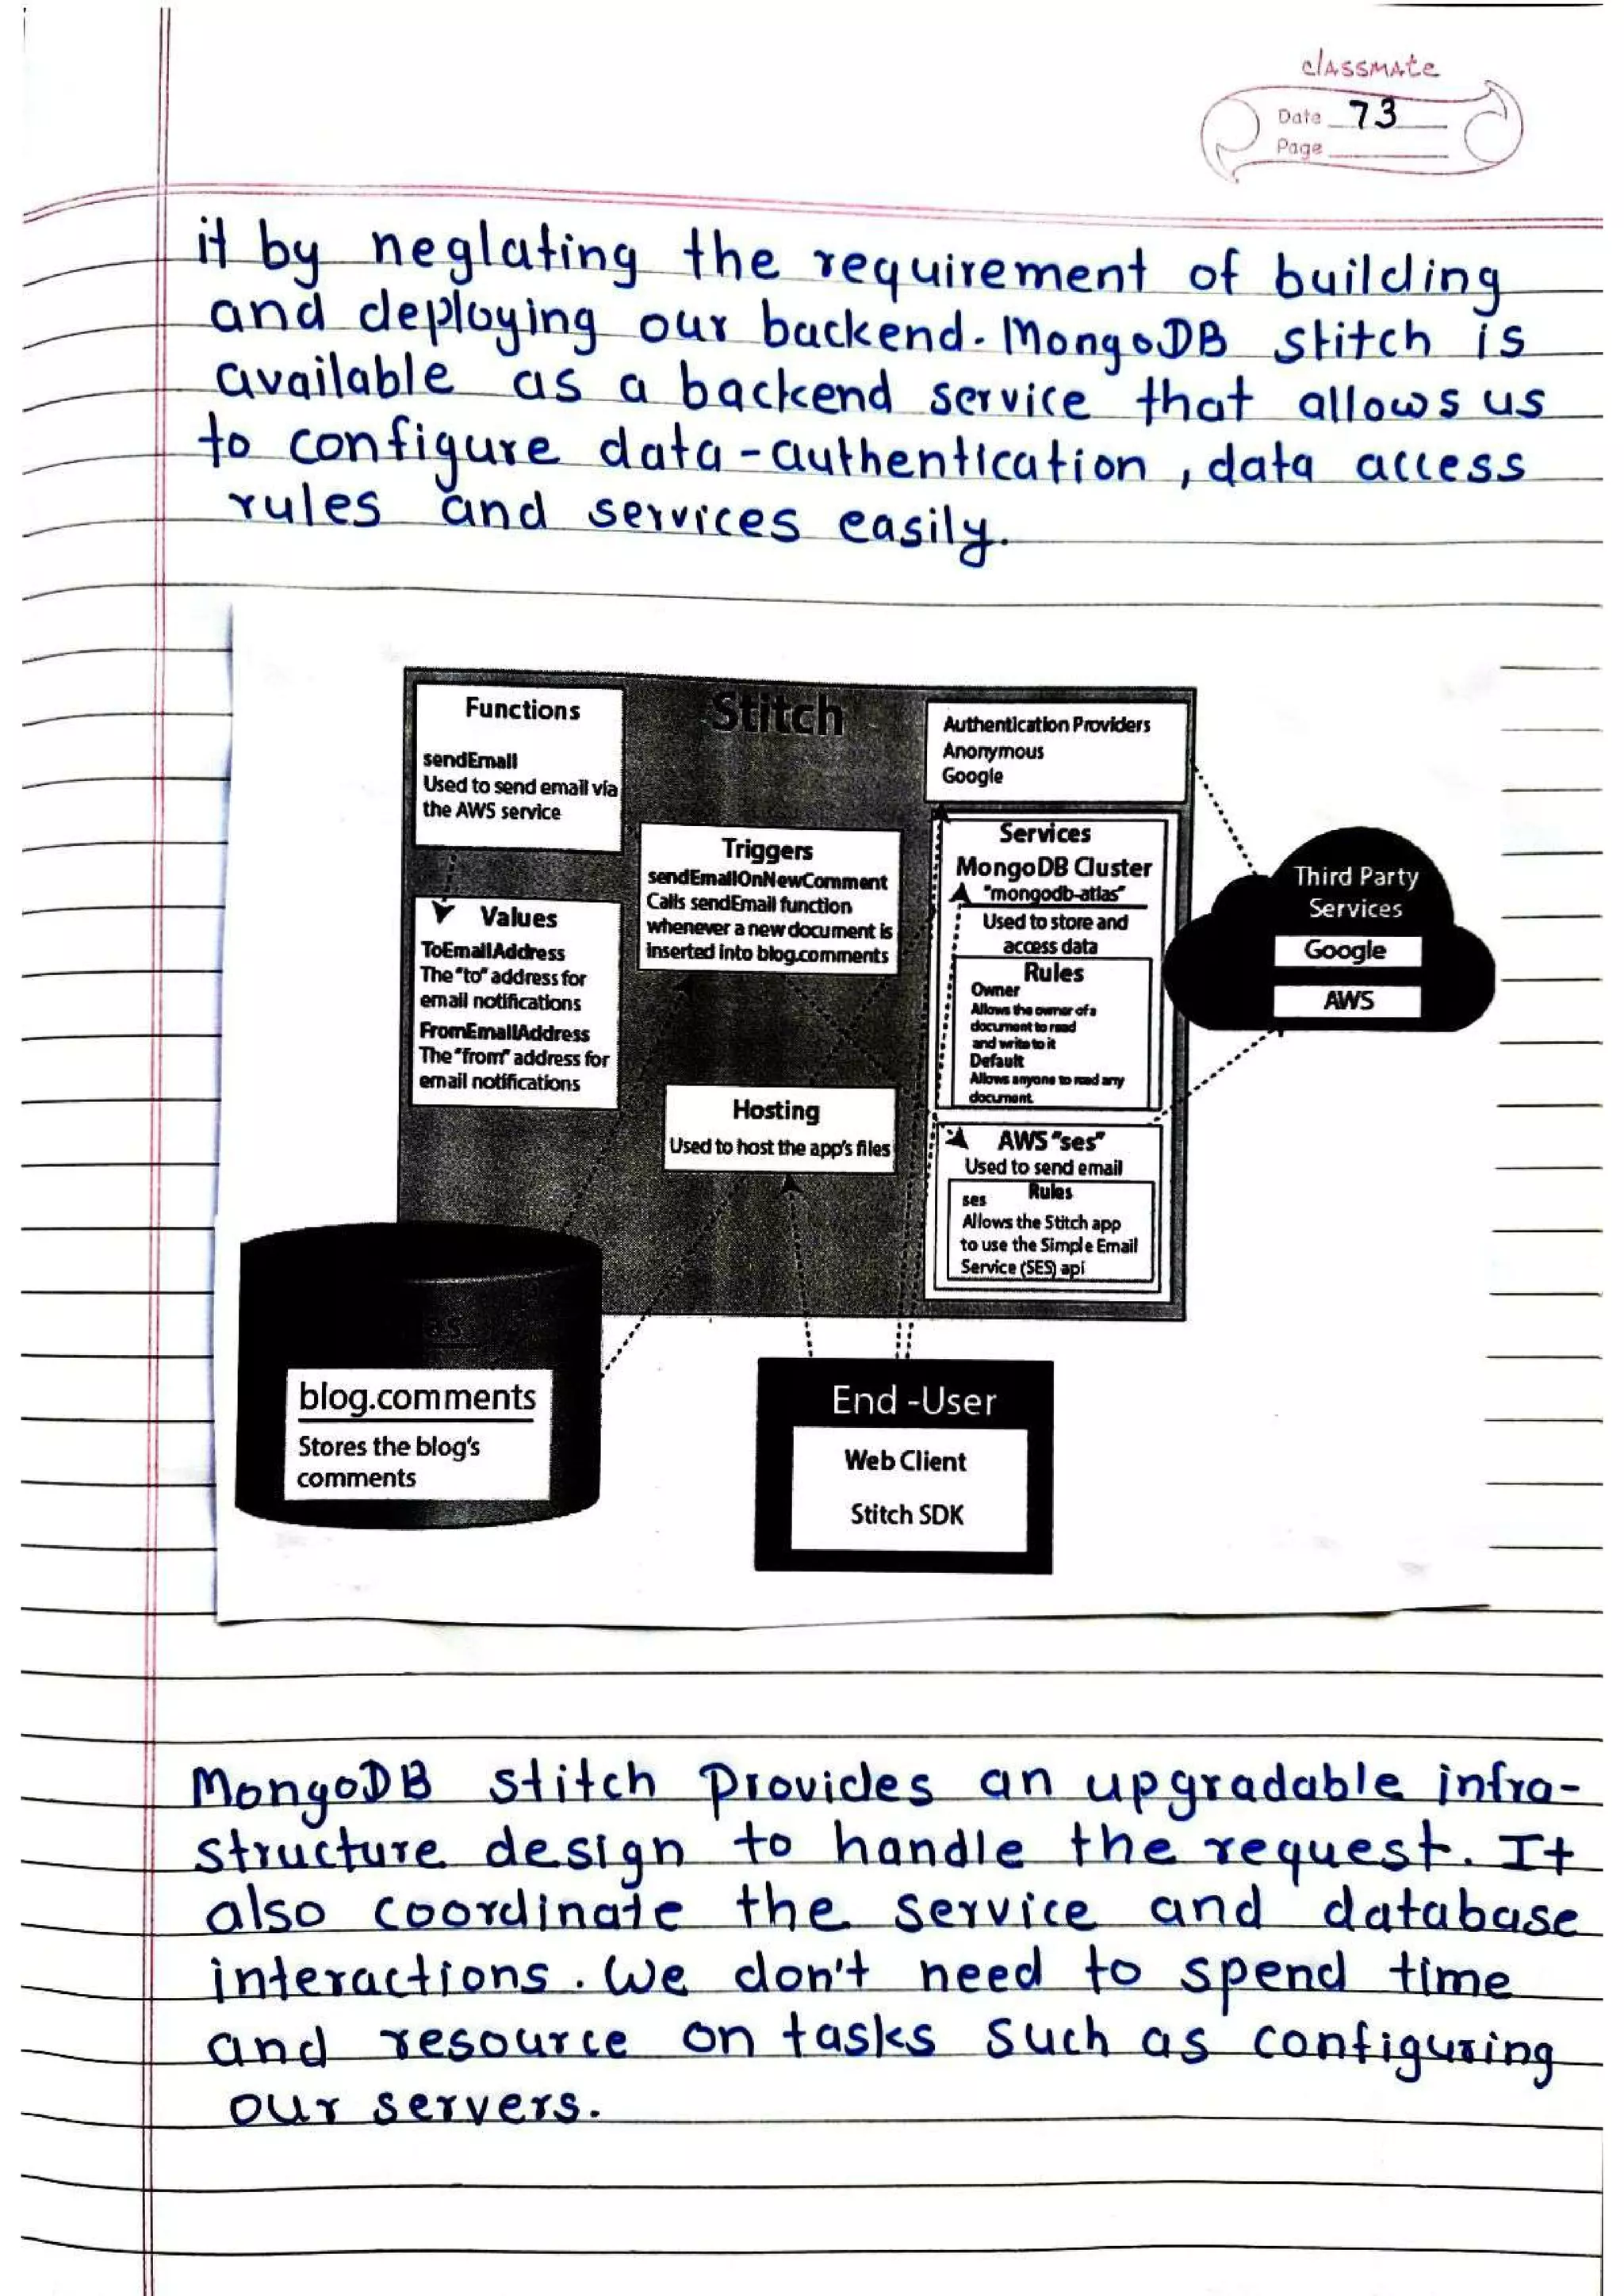 classmate
Date 73
Page
it by neglating the requirement of building
and deploying our backend. MongoDB stitch is
available as a backend service that allows us
to configure data-authentication, data access
rules and services easily.
Stitch
Functions
sendEmail
Used to send email via
the AWS service
Values
ToEmailAddress
The "to" address for
email notifications
FromEmailAddress
The "from" address for
email notifications
Triggers
sendEmailOnNewComment
Calls sendEmail function
whenever a new document is
inserted into blog.comments
Hosting
Used to host the app's files
Authentication Providers
Anonymous
Google
Services
MongoDB Cluster
"mongodb-atlas"
Used to store and
access data
Rules
Owner
Allows the owner of a
document to read
and write to it
Default
Allows anyone to read any
document
AWS "ses"
Used to send email
Rules
ses
Allows the Stitch app
to use the Simple Email
Service (SES) api
Third Party
Services
Google
AWS
blog.comments
Stores the blog's
comments
End -User
Web Client
Stitch SDK
MongoDB stitch provides an upgradable infra-
structure design to handle the request. It
also coordinate the service and database
interactions. We don't need to spend time
and resource on tasks such as configuring
our servers.